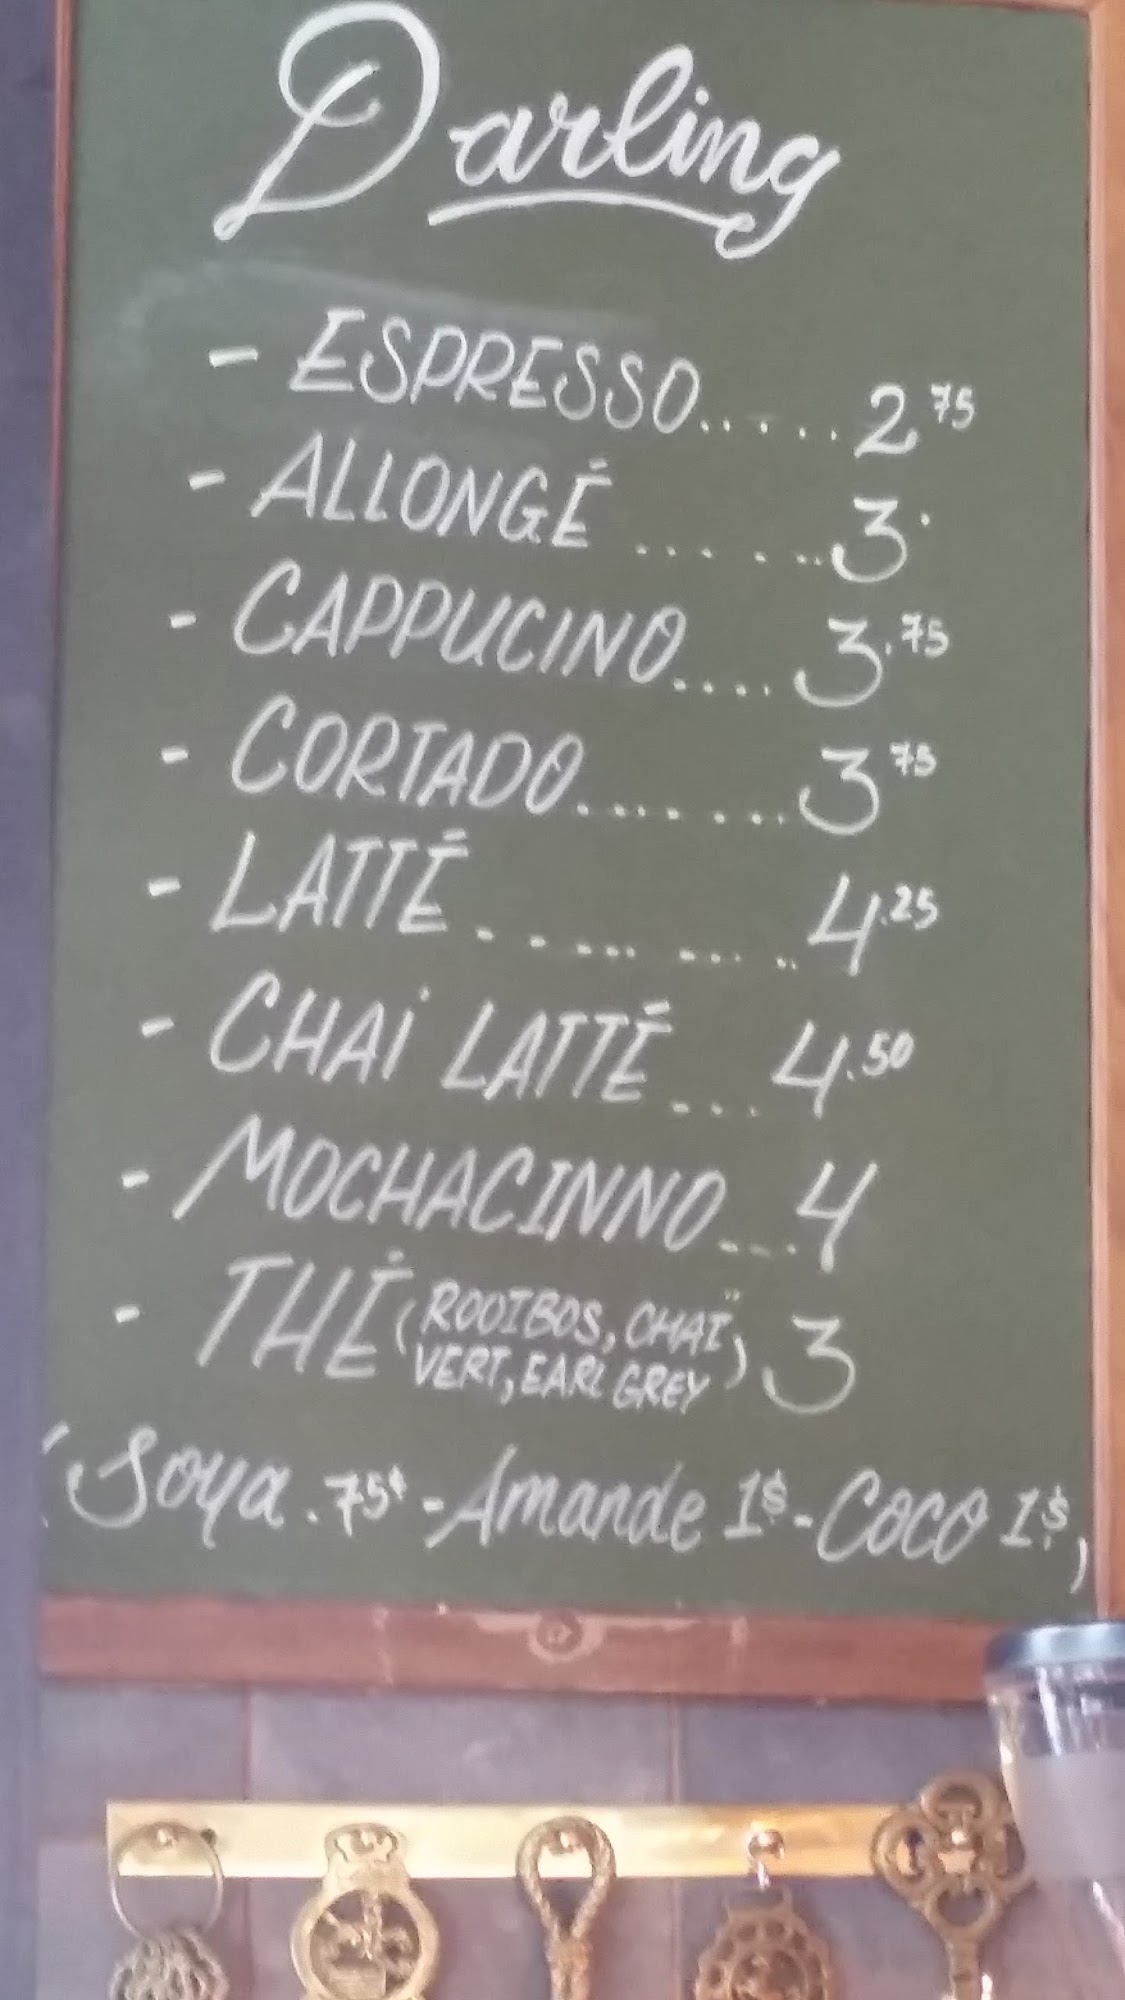 Darling
- ESPRESSO...... 2 75
- ALLONGÉ ....... 3.
- CAPPUCINO.... 3.75
- CORTADO....... 3 75
- LATTÉ......... 4.25
- CHAi LATTÉ ... 4.50
- MOCHACINNO... 4
- THÉ (ROOIBOS, CHAÏ, VERT, EARL GREY) 3
(Soya .75¢ - Amande 1$ - Coco 1$)